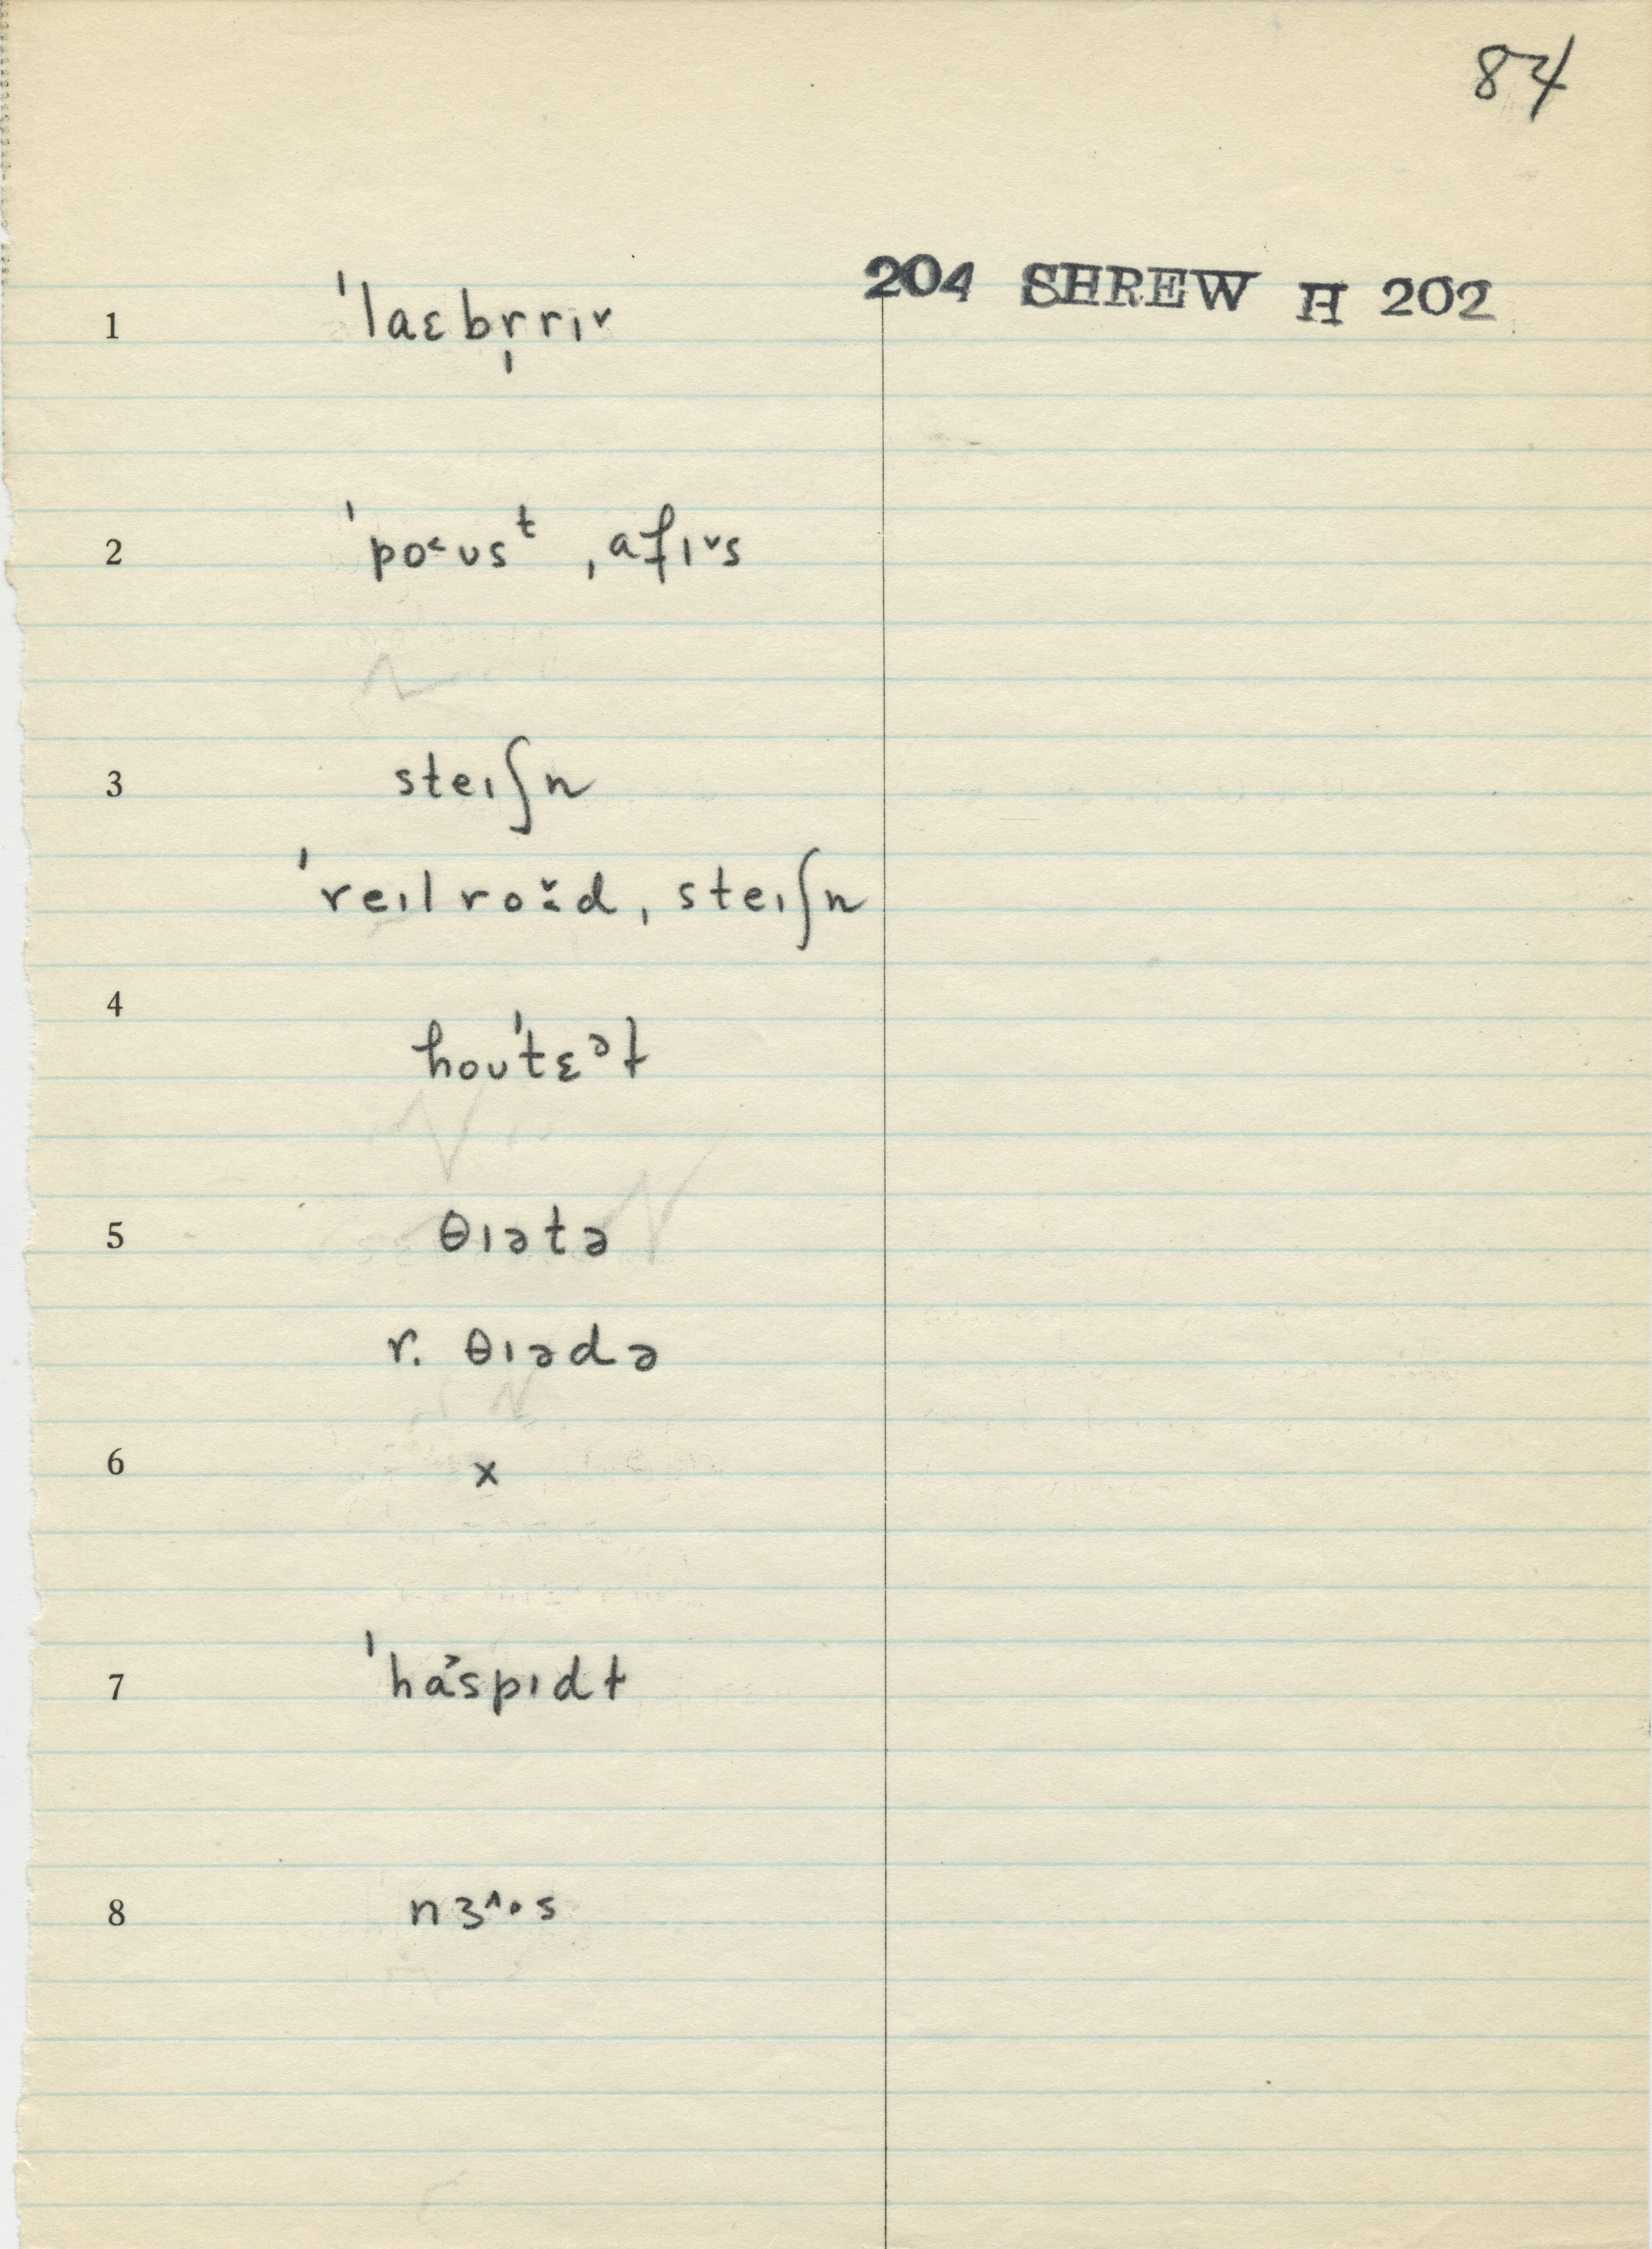 84
204 SHREW H 202
1 ˈlaɛbr̩rɪ˅
2 ˈpo˂ʊsᵗ ˌafɪ˅s
3 steɪʃn
ˈreɪlro̬˂d ˌsteɪʃn
4 hoʊˈtɛᵊɫ
5 θɪətə
r. θɪədə
6 x
7 ˈha˃spɪdɫ
8 nɜ˄·s